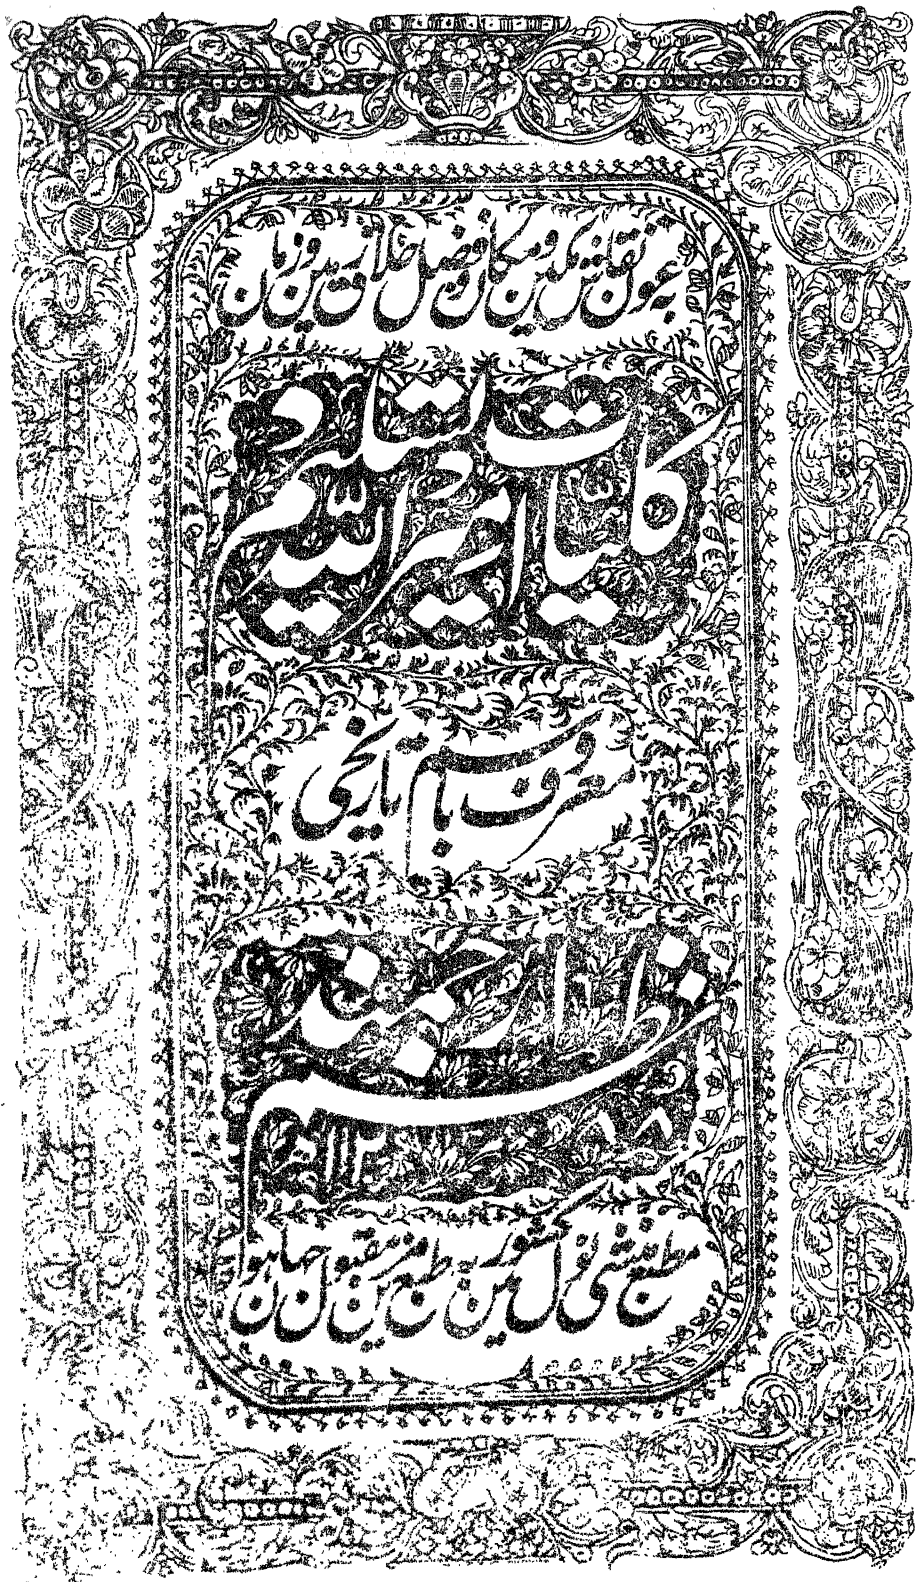 بعون نقاش مکین و مکان و فضل خلاق زمین و زمان
کلیات امیر اللہ تسلیم
معروف باسم تاریخی
نظم ارجمند
مطبع منشی نولکشور مین بہ طبع مزین مقبول جہان ہوا